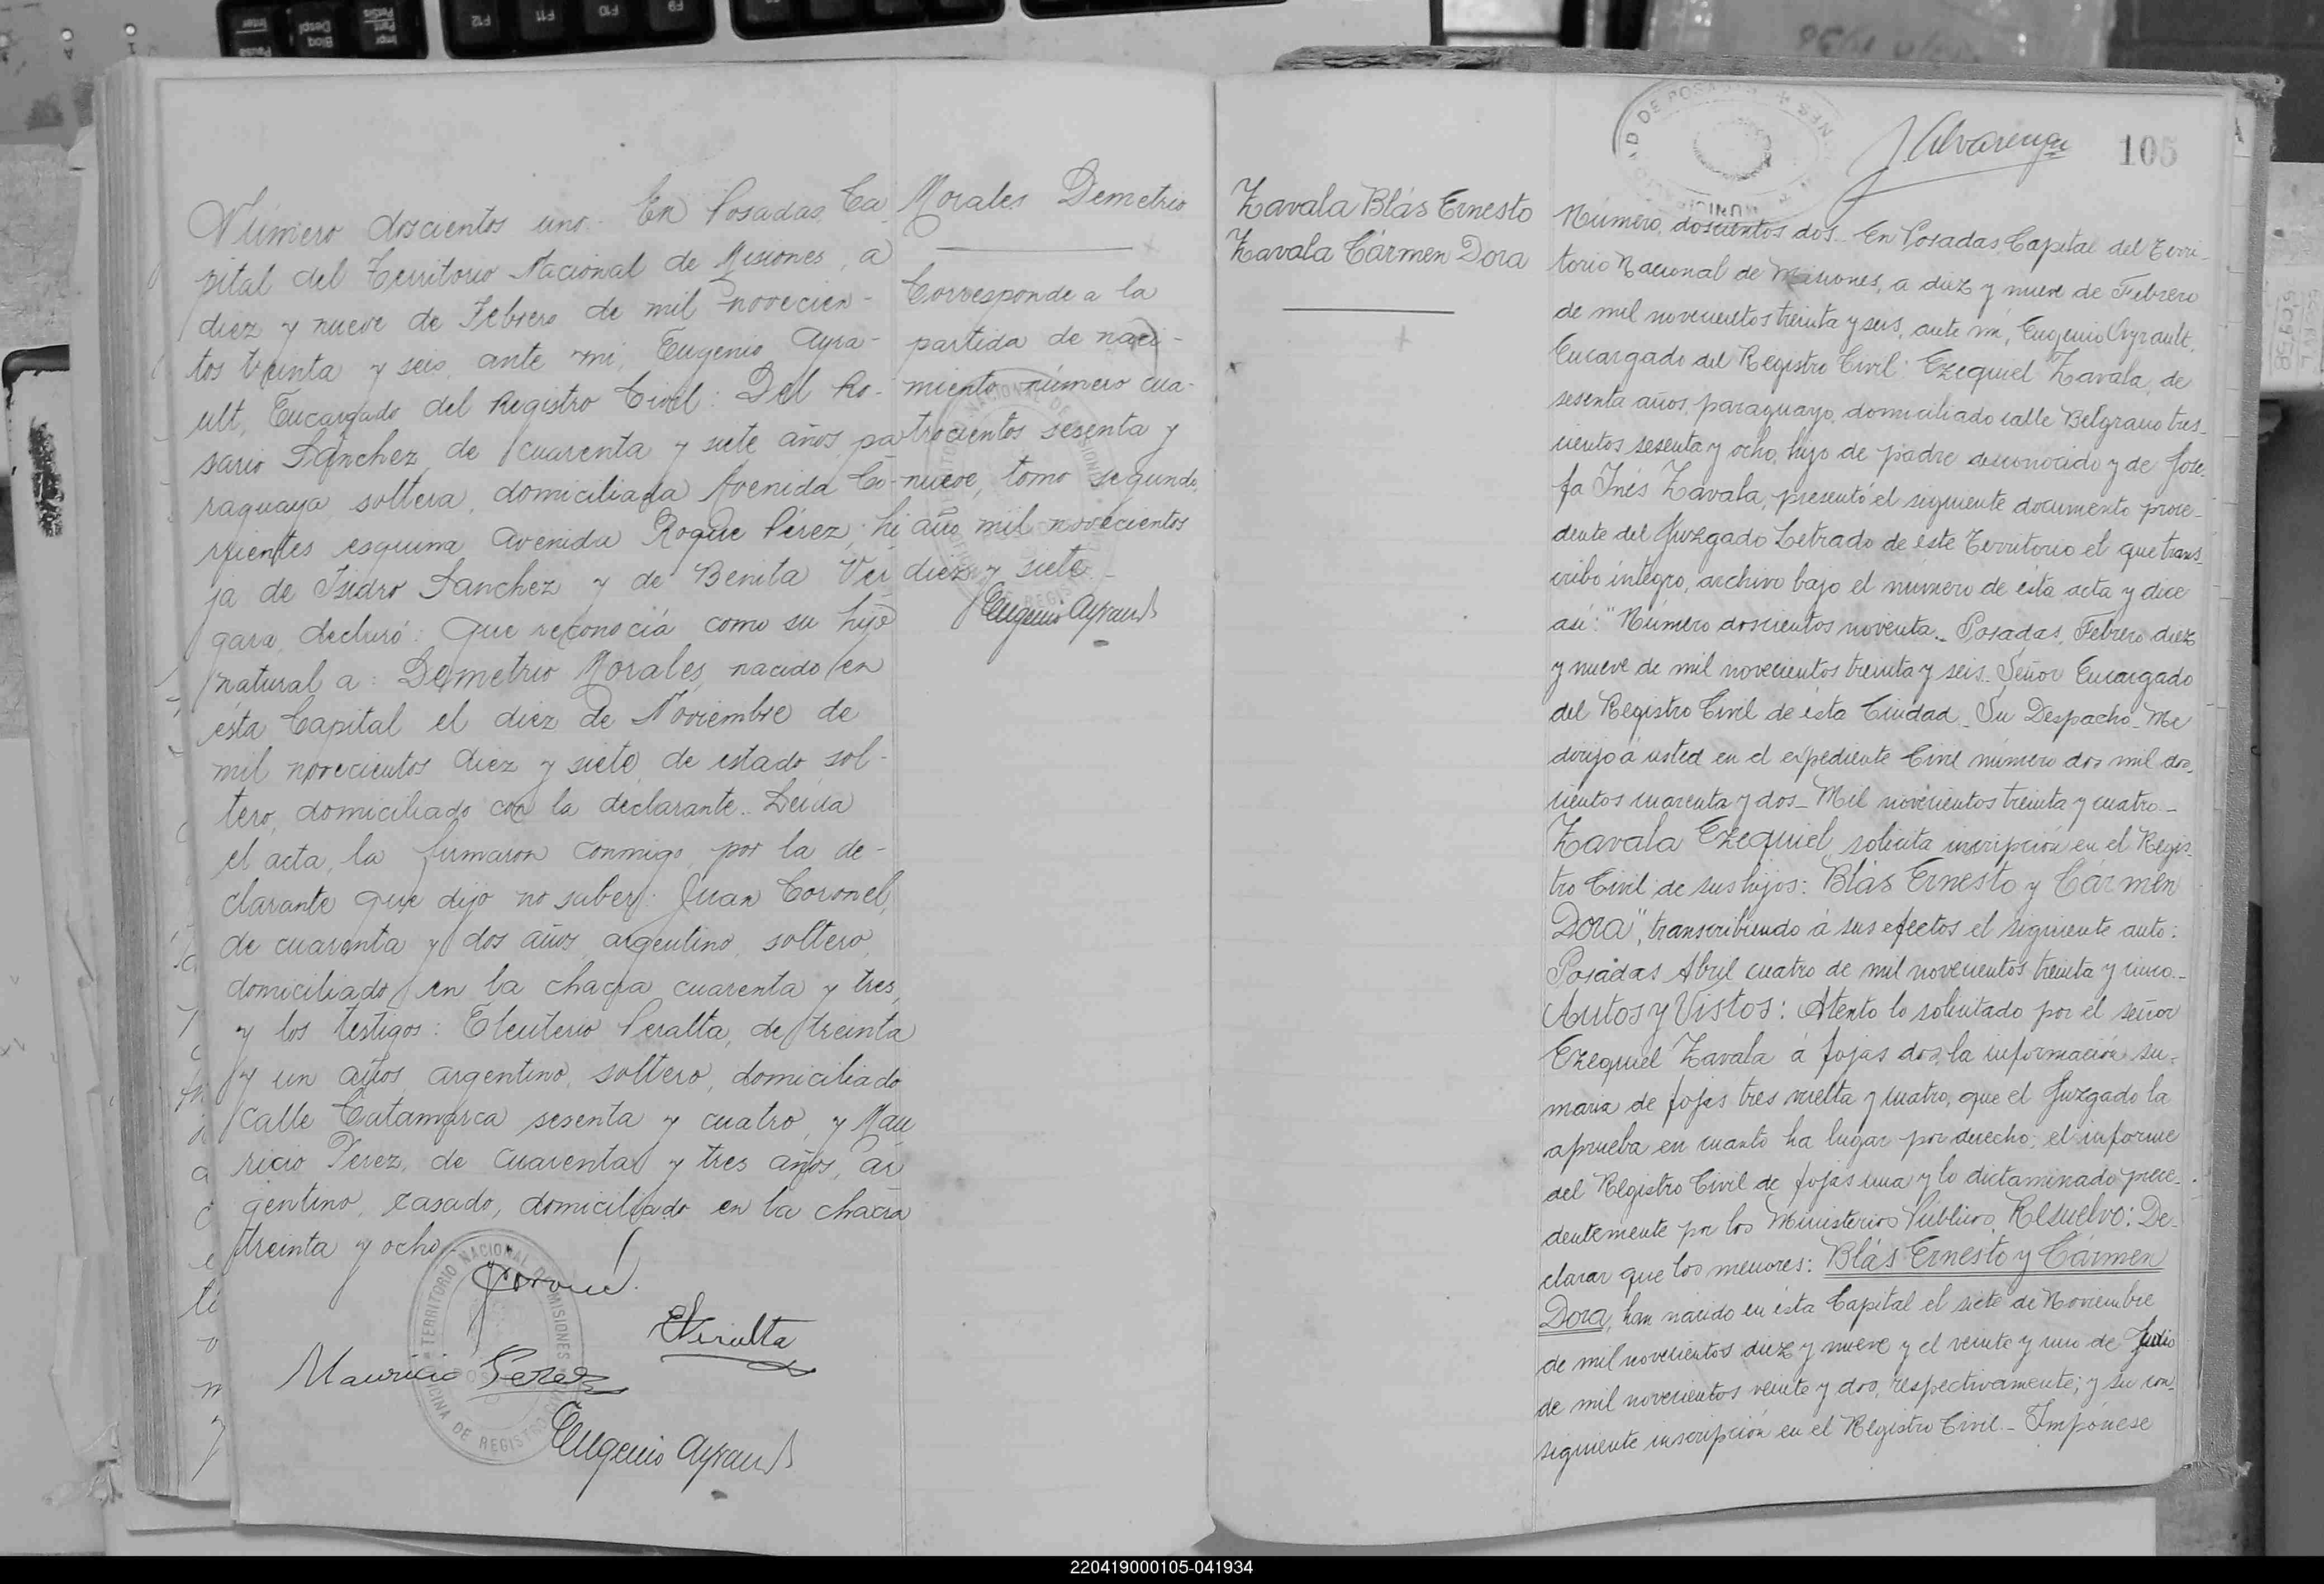 Número doscientos uno. En Posadas, Ca
pital del Territorio Nacional de Misiones, a
diez y nueve de Febrero de mil novecien-
tos treinta y seis, ante mi, Eugenio Ayra-
ult, Encargado del Registro Civil: Del Ro-
sario Sánchez, de cuarenta y siete años, pa
raguaya soltera, domiciliada Avenida Co-
rrientes esquina Avenida Roque Pérez, hi
ja de Isidro Sanchez y de Benita Ver
gara, declaró: Que reconociá como su hijo
natural a: Demetrio Morales, nacido en
ésta Capital el diez de Noviembre de
mil novecientos diez y siete, de estado sol-
tero, domiciliado con la declarante. Leida
el acta, la firmaron conmigo, por la de-
clarante que dijo no saber: Juan Coronel,
de cuarenta y dos años, argentino, soltero,
domiciliado en la chacra cuarenta y tres,
y los testigos: Eleuterio Peralta, de treinta
y un años, argentino, soltero, domiciliado
calle Catamarca sesenta y cuatro, y Mau
ricio Perez, de cuarenta y tres años, ar
gentino, casado, domiciliado en la chacra
treinta y ocho.
EPeralta
Mauricio Perez
Eugenio Ayrault
TERRITORIO NACIONAL DE MISIONES
OFICINA DE REGISTRO CIVIL
Morales Demetrio
Corresponde a la
partida de naci-
miento número cua-
trocientos sesenta y
nueve, tomo segundo,
año mil novecientos
diez y siete.
Eugenio Ayrault
Zavala Blás Ernesto
Zavala Cármen Dora
JAlvarenga
105
Número doscientos dos. En Posadas, Capital del Terri-
torio Nacional de Misiones, a diez y nueve de Febrero
de mil novecientos treinta y seis, ante mi, Eugenio Ayrault,
Encargado del Registro Civil: Ezequiel Zavala, de
sesenta años, paraguayo, domiciliado calle Belgrano tres-
cientos sesenta y ocho, hijo de padre desconocido y de Jose-
fa Inés Zavala, presentó el siguiente documento proce-
dente del Juzgado Letrado de éste Territorio el que trans-
cribo íntegro, archivo bajo el número de ésta acta y dice
así: "Número doscientos noventa.- Posadas, Febrero diez
y nueve de mil novecientos treinta y seis. Señor Encargado
del Registro Civil de ésta Ciudad. Su Despacho. Me
dirijo á usted en el expediente Civil número dos mil dos-
cientos cuarenta y dos- Mil novecientos treinta y cuatro.-
Zavala Ezequiel, solicita inscripción en el Regis-
tro Civil de sus hijos: Blás Ernesto y Cármen
Dora", transcribiendo á sus efectos el siguiente auto:
Posadas Abril cuatro de mil novecientos treinta y cinco.-
Autos y Vistos: Atento lo solicitado por el señor
Ezequiel Zavala á fojas dos, la información su-
maria de fojas tres vuelta y cuatro, que el Juzgado la
aprueba en cuanto ha lugar por derecho; el informe
del Registro Civil de fojas una y lo dictaminado prece-
dentemente por los Ministerios Publicos, Resuelvo: De-
clarar que los menores: Blás Ernesto y Cármen
Dora, han nacido en ésta Capital el siete de Noviembre
de mil novecientos diez y nueve y el veinte y uno de Julio
de mil novecientos veinte y dos, respectivamente; y su con-
siguiente inscripción en el Registro Civil.- Impónese
220419000105-041934